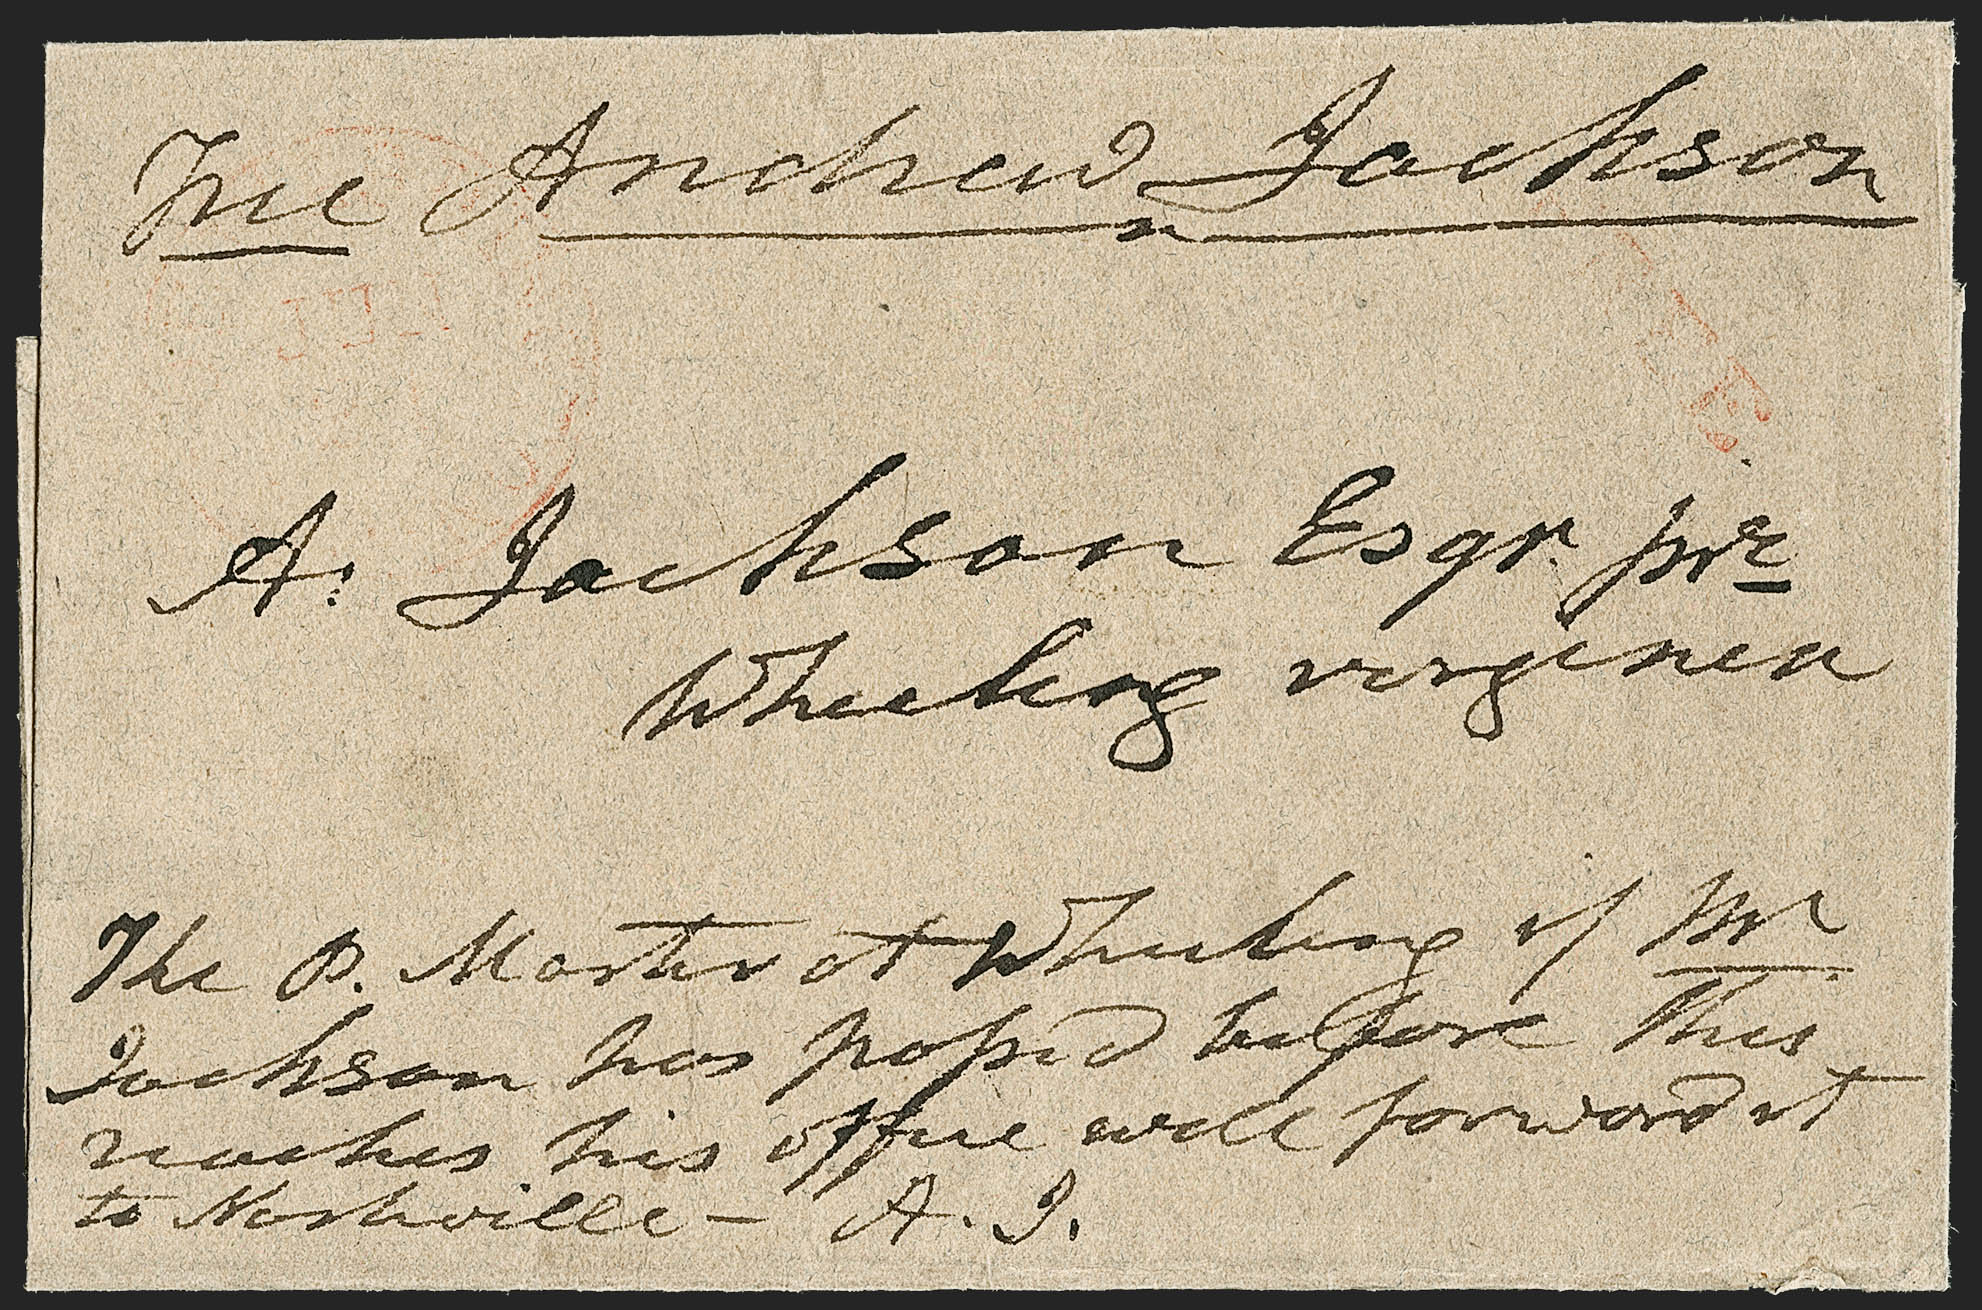 Free Andrew Jackson
A. Jackson Esqr. jnr
Wheeling virginia
The P. Master at Wheeling if Mr
Jackson has passed before this
reaches his office will forward it
to Nashville — A. J.